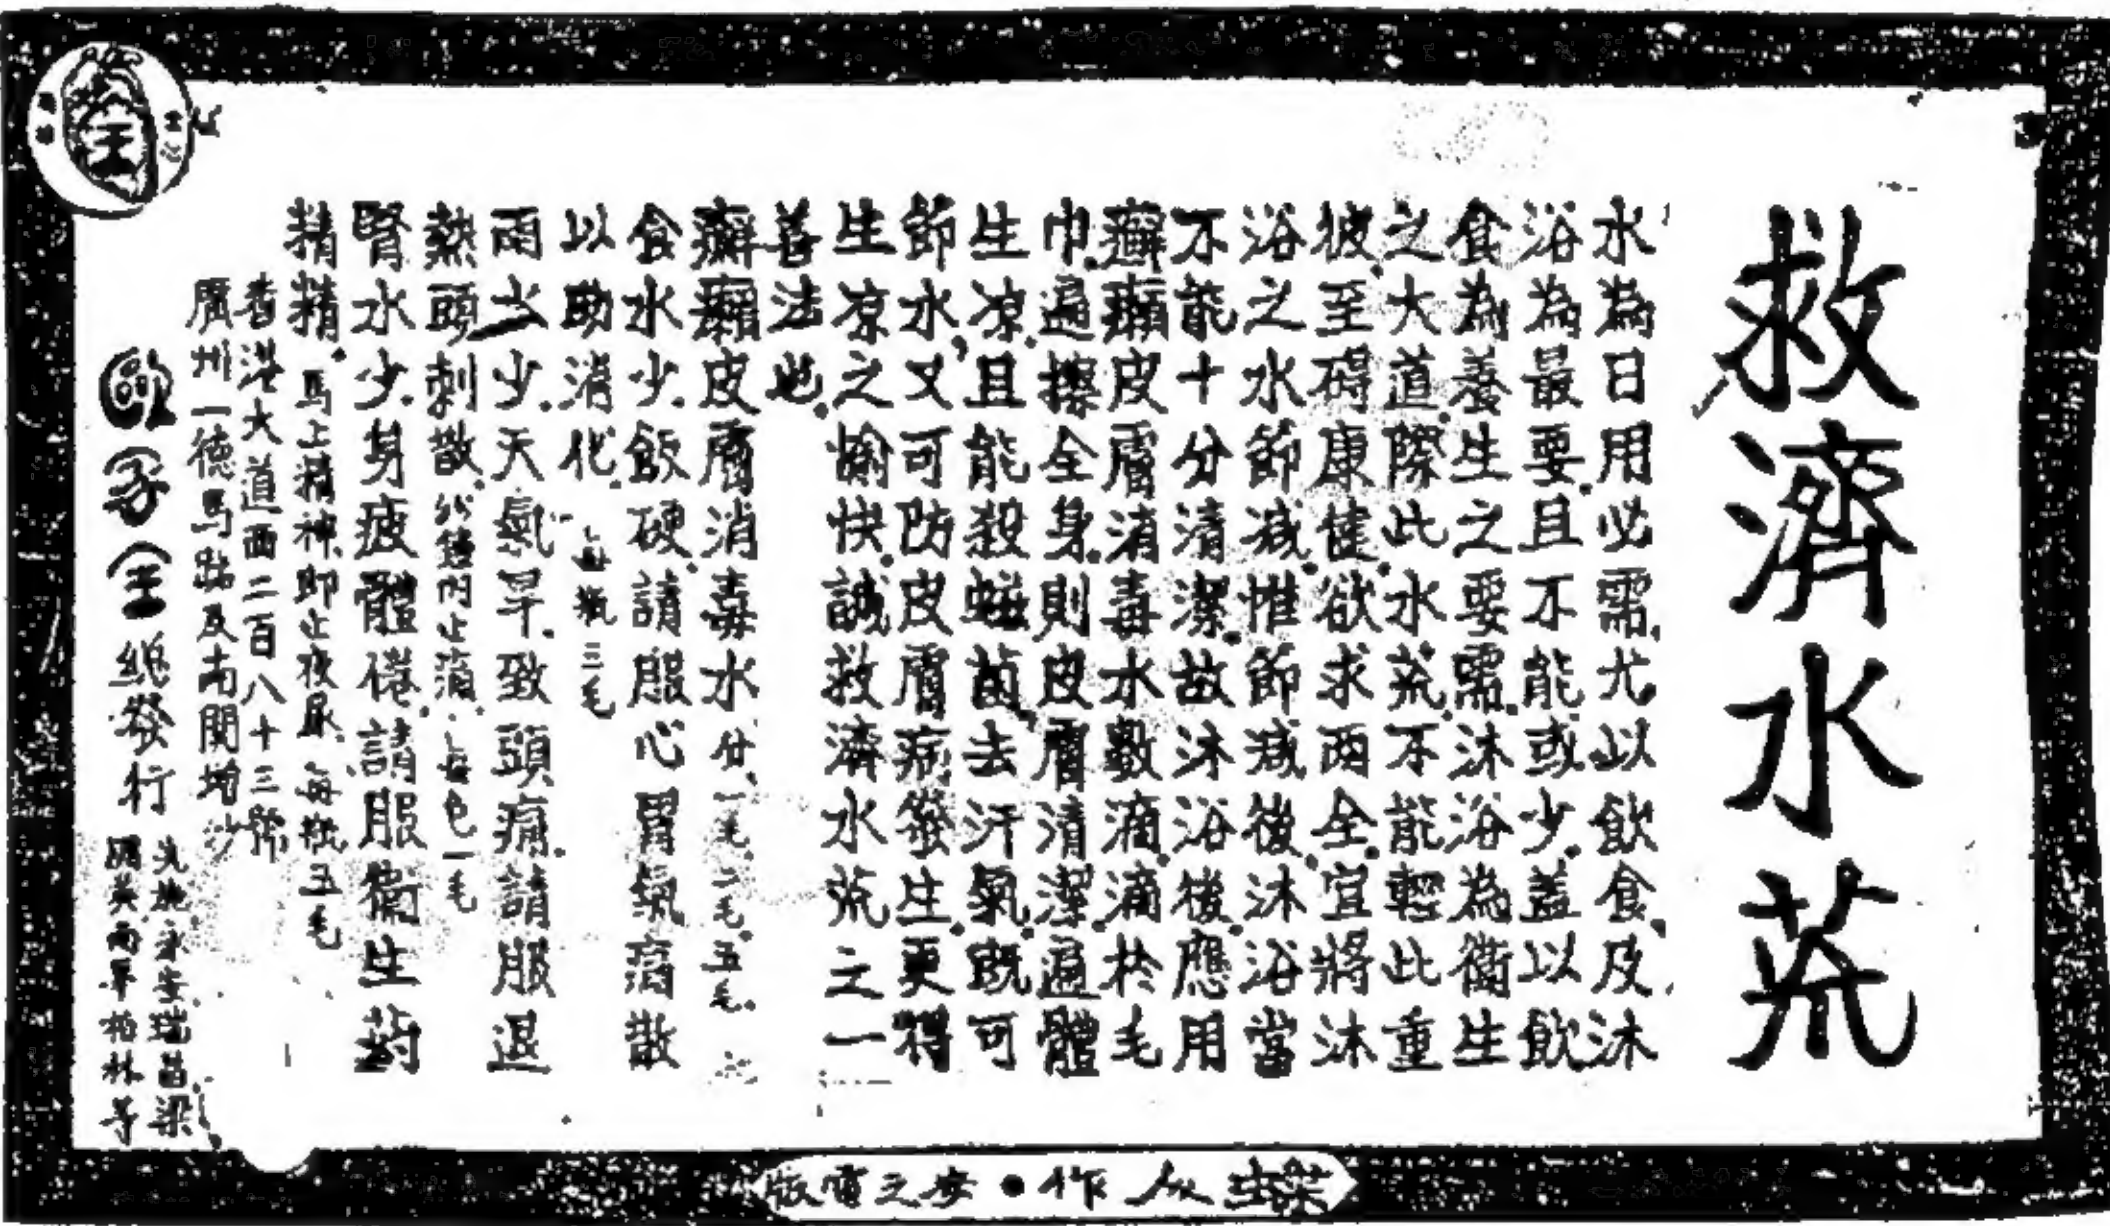 救濟水荒
水為日用必需尤以飲食及沐
浴為最要且不能或少蓋以飲
食為養生之要需沐浴為衛生
之大道際此水荒不能輕此重
彼至碍康健欲求兩全宜將沐
浴之水節減惟節減後沐浴當
不能十分清潔故沐浴後應用
癬癩皮膚消毒水數滴滴於毛
巾遍擦全身則皮膚清潔遍體
生凉且能殺蛓菌去汗氣既可
節水又可防皮膚病發生更得
生凉之愉快誠救濟水荒之一
善法也
癬癩皮膚消毒水 一毛二毛五毛
食水少飯硬請服心胃氣痛散
以助消化 每瓶三毛
雨水少天氣旱致頭痛請服退
熱頭刺散 分鐘內止痛 每包一毛
腎水少身疲體倦請服衛生葯
精精 馬上精神即止夜尿 每瓶五毛
香港大道西二百八十三號
廣州一德馬路及南關增沙
歐家全總發行
先施永安瑞昌梁
國英兩軍柏林等
梁生人作●安之電版